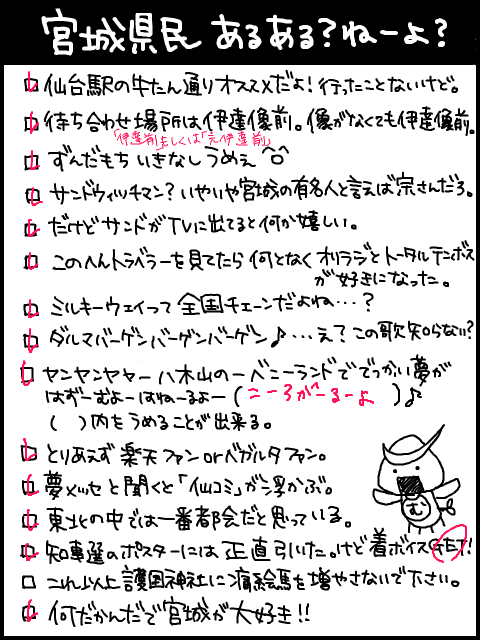 宮城県民 あるある?ねーよ?
仙台駅の牛たん通りオススメだよ!行ったことないけど。
待ち合わせ場所は伊達像前。像がなくても伊達像前。
「伊達前」もしくは「元伊達前」
ずんだもち いきなし うめぇ
サンドウィッチマン?いやいや宮城の有名人と言えば宗さんだろ。
だけどサンドがTVに出てると何か嬉しい。
このへんトラベラーを見てたら何となくオリラジとトータルテンボス
が好きになった。
ミルキーウェイって全国チェーンだよね…?
ダルマバーゲンバーゲンバーゲン♪…え?この歌知らない?
ヤンヤンヤャー八木山のーベニーランドででっかい夢が
はずーむよーはねーるよー(こーろがーるーよ)♪
( )内をうめることが出来る。
とりあえず楽天ファンorベガルタファン。
夢メッセと聞くと「仙コミ」が浮かぶ。
東北の中では一番都会だと思っている。
む
知事選のポスターには正直引いた。けど着ボイスは
これ以上護国神社に痛絵馬を増やさないで下さい。
何だかんだで宮城が大好き!!